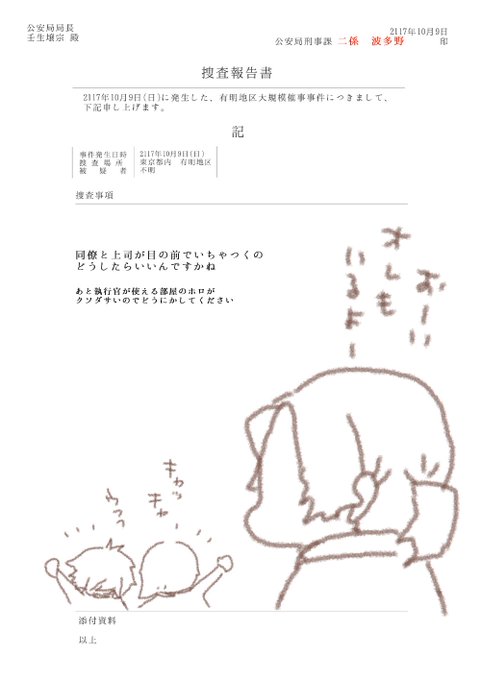 公安局局長
壬生壌宗 殿
2117年10月9日
公安局刑事課 二係 波多野 印
捜査報告書
2117年10月9日(日)に発生した、有明地区大規模催事事件につきまして、
下記申し上げます。
記
事件発生日時 2117年10月9日(日)
捜査場所 東京都内 有明地区
被疑者 不明
捜査事項
同僚と上司が目の前でいちゃつくの
どうしたらいいんですかね
あと執行官が使える部屋のホロが
クソダサいのでどうにかしてください
おーい
オレも
いるよー
キャッ
キャ
うふふ
添付資料
以上